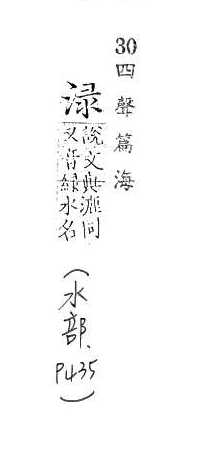 30四聲篇海
渌
說文與漉同
又音綠水名
(水部、P435)